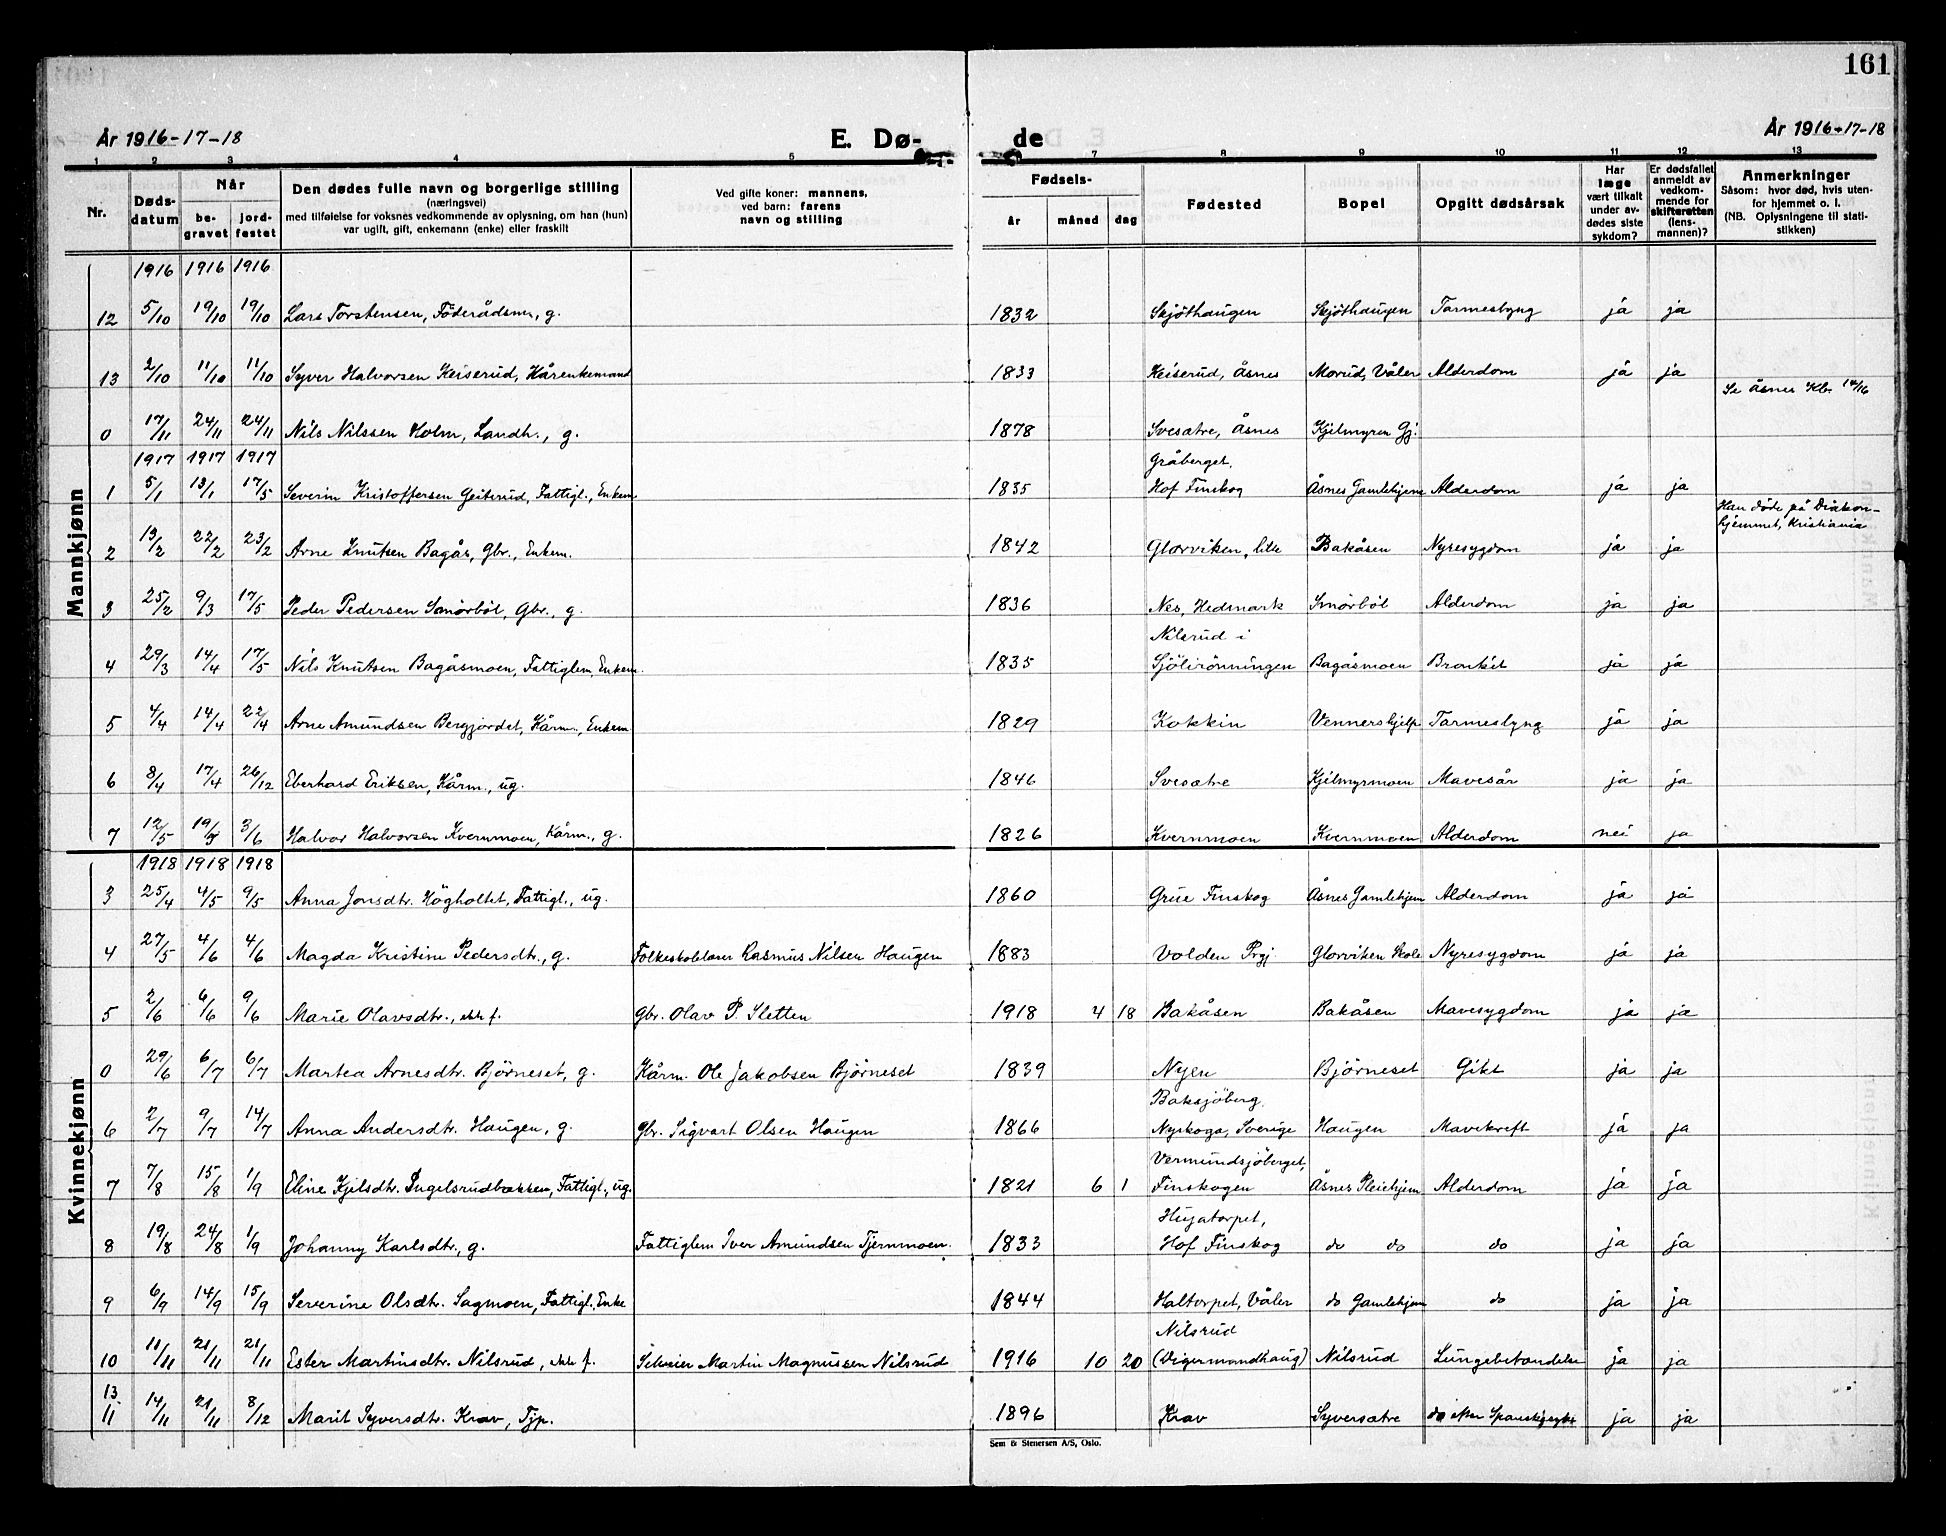 161
År 1916-17-18 E. Dø- de År 1916-17-18
1 2 3 4 5 7 8 9 10 11 12 13
Nr. Døds-datum Når be-gravet jord-festet Den dødes fulle navn og borgerlige stilling (næringsvei) med tilføielse for voksnes vedkommende av oplysning, om han (hun) var ugift, gift, enkemann (enke) eller fraskilt Ved gifte koner: mannens, ved barn: farens navn og stilling Fødsels- år måned dag Fødested Bopel Opgitt dødsårsak Har læge vært tilkalt under av-dødes siste sykdom? Er dødsfallet anmeldt av vedkom-mende for skifteretten (lens-mannen)? Anmerkninger Såsom: hvor død, hvis uten-for hjemmet o. l. (NB. Oplysningene til stati-stikken)
Mannkjønn
1916 1916 1916
12 5/10 19/10 19/10 Lars Torstensen, Föderådsm, g. 1832 Skjöthaugen Skjöthaugen Tarmeslyng ja ja
13 2/10 11/10 11/10 Syver Halvorsen Keiserud, Kårenkemand 1833 Keiserud, Åsnes Morud, Våler Alderdom ja ja Se Åsnes Kb. 14/16
0 17/11 24/11 24/11 Nils Nilssen Holm, Landh., g. 1878 Svesætre, Åsnes Kjelmyren Gj.
1917 1917 1917 Gråberget,
1 5/1 13/1 17/5 Severin Kristoffersen Geiterud, Fattigl., Enkem 1835 Hof Finskog Åsnes Gamlehjem Alderdom ja ja
Han döde på Diakon-
hjemmet, Kristiania
2 13/2 22/2 23/2 Arne Knutsen Bagås, Gbr., Enkem. 1842 Glorviken, lille Bakåsen Nyresygdom ja ja
3 25/2 9/3 17/5 Peder Pedersen Smörböl, Gbr., g. 1836 Nes, Hedmark Smörböl Alderdom ja ja
Nilsrud i
4 29/3 14/4 17/5 Nils Knutsen Bagåsmoen, Fattiglem, Enkem. 1835 Sjölirönningen Bagåsmoen Bronkit ja ja
5 4/4 14/4 22/4 Arne Amundsen Bergjordet, Kårm., Enkem 1829 Kokkin Vennershjelp Tarmeslyng ja ja
6 8/4 17/4 26/12 Eberhard Eriksen, Kårm., ug. 1846 Svesætre Kjelmyrmoen Mavesår ja ja
7 12/5 19/5 3/6 Halvor Halvorsen Kvernmoen, Kårm., g. 1826 Kvernmoen Kvernmoen Alderdom nei ja
Kvinnekjønn
1918 1918 1918
3 25/4 4/5 9/5 Anna Jonsdtr. Högholtet, Fattigl., ug. 1860 Grue Finskog Åsnes Gamlehjem Alderdom ja ja
4 27/5 4/6 4/6 Magda Kristine Pedersdtr., g. Folkeskolelærer Rasmus Nilsen Haugen 1883 Volden Prgj. Glorviken Skole Nyresygdom ja ja
5 2/6 6/6 9/6 Marie Olavsdtr., ekte f. Gbr. Olav P. Sletten 1918 4 18 Bakåsen Bakåsen Mavesygdom ja ja
0 29/6 6/7 6/7 Martea Arnesdtr. Björneset, g. Kårm. Ole Jakobsen Björneset 1839 Nyen Björneset Gikt ja ja
Baksjöberg,
6 2/7 9/7 14/7 Anna Andersdtr. Haugen, g. Gbr. Sigvart Olsen Haugen 1866 Nyskoga, Sverige Haugen Mavekreft ja ja
Vermundsjöberget,
7 7/8 15/8 1/9 Eline Kjelsdtr. Ingelsrudbækken, Fattigl., ug. 1821 6 1 Finskogen Åsnes Pleiehjem Alderdom ja ja
Hugatorpet,
8 19/8 24/8 1/9 Johanny Karlsdtr., g. Fattiglem Iver Amundsen Tjernmoen. 1833 Hof Finskog do do do ja ja
9 6/9 14/9 15/9 Severine Olsdtr. Sagmoen, Fattigl. Enke 1844 Haltorpet, Våler do Gamlehjem do ja ja
Nilsrud
10 11/11 21/11 21/11 Ester Martinsdtr. Nilsrud, ekte f. Selveier Martin Magnussen Nilsrud 1916 10 20 (Digermandhaug) Nilsrud Lungebetændelse ja ja
13
11 14/11 21/11 8/12 Marit Syversdtr. Krav, Tjp. 1896 Krav Syversætre do efter Spanskesyke ja ja
Sem & Stenersen A/S, Oslo.